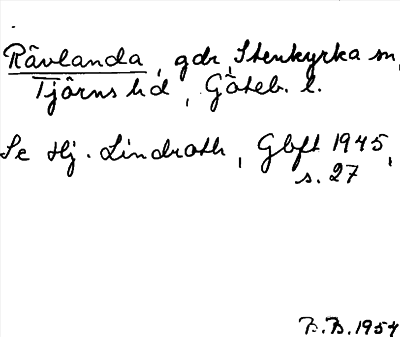 Råvlanda, gdr, Stenkyrka sn,
Tjörns hd, Göteb. l.
Se Hj. Lindroth, Gbft 1945,
s. 27
B.B. 1954